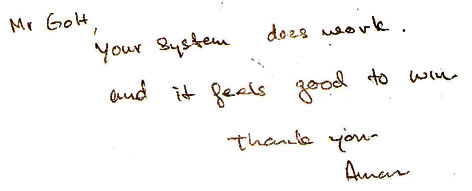 Mr GoH,
Your system does work.
and it feels good to win
Thank you
Aman